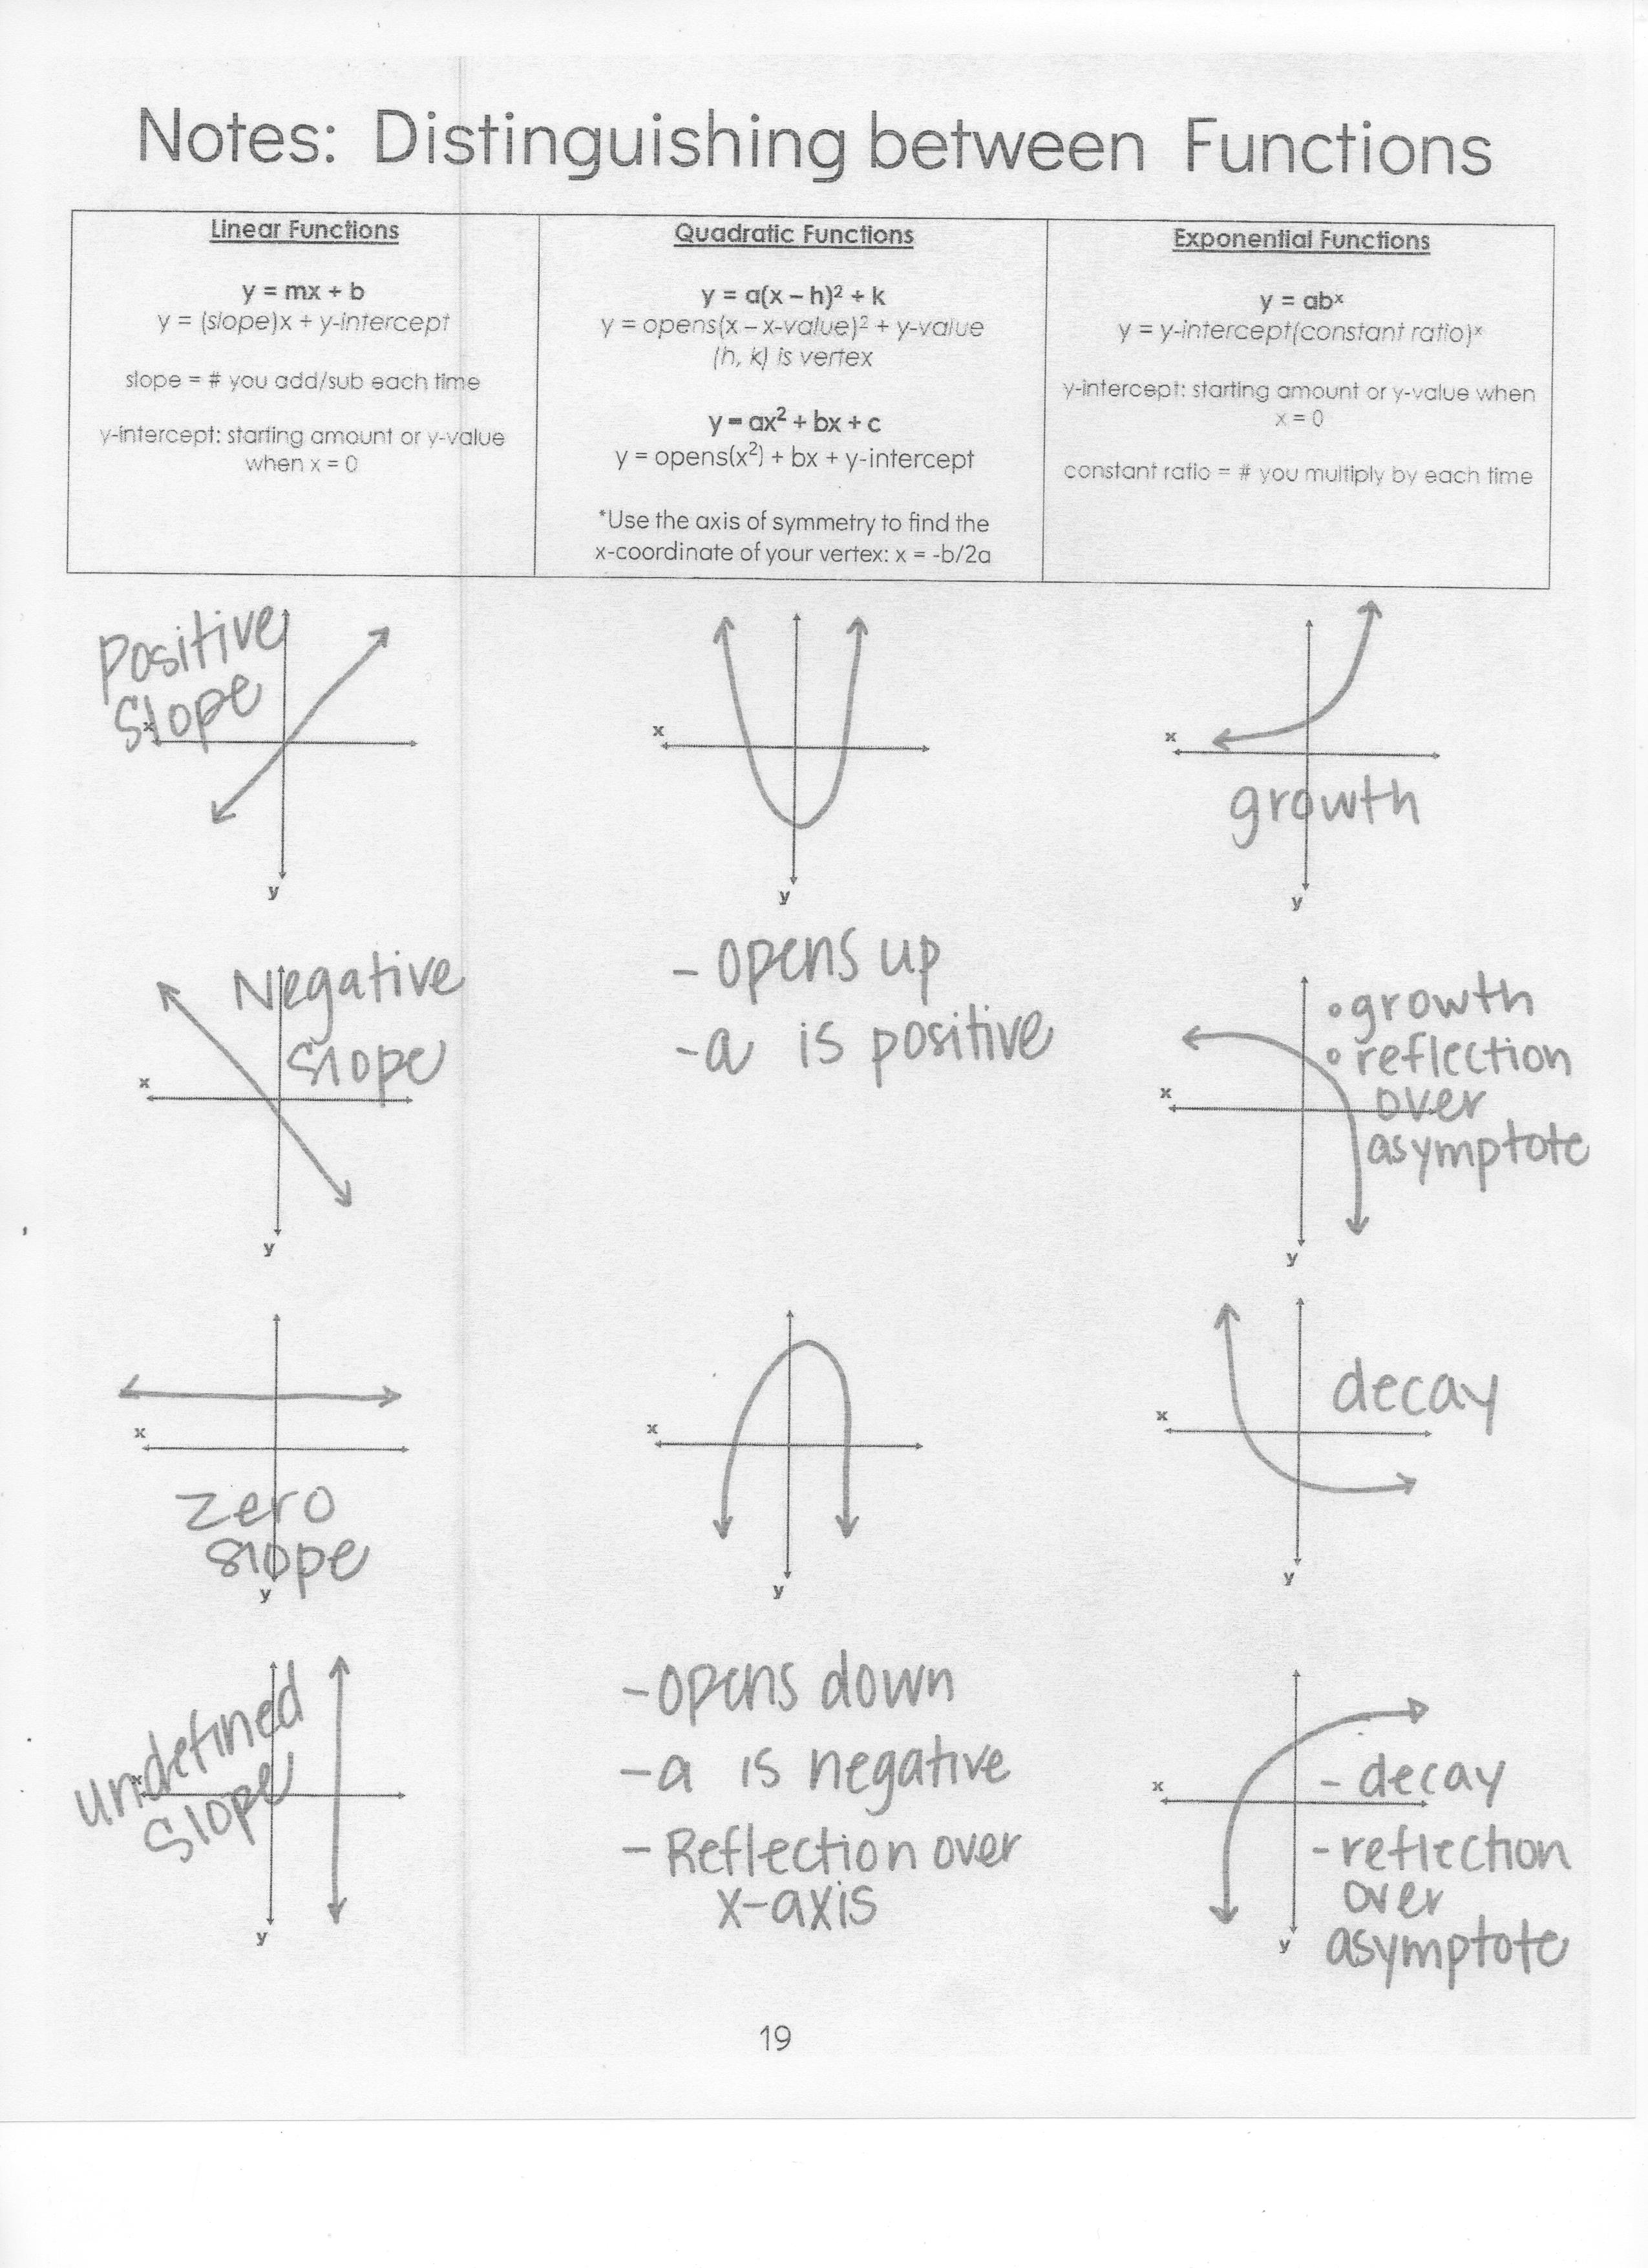 Notes: Distinguishing between Functions
Linear Functions
y = mx + b
y = (slope)x + y-intercept
slope = # you add/sub each time
y-intercept: starting amount or y-value
when x = 0
Quadratic Functions
y = a(x – h)² + k
y = opens(x – x-value)² + y-value
(h, k) is vertex
y = ax² + bx + c
y = opens(x²) + bx + y-intercept
*Use the axis of symmetry to find the
x-coordinate of your vertex: x = -b/2a
Exponential Functions
y = abˣ
y = y-intercept(constant ratio)ˣ
y-intercept: starting amount or y-value when
x = 0
constant ratio = # you multiply by each time
Positive
Slope
x
y
x
y
x
growth
y
Negative
Slope
x
y
- opens up
- a is positive
• growth
• reflection
over
asymptote
x
y
x
zero
slope
y
x
y
decay
x
y
undefined
Slope
x
y
- opens down
- a is negative
- Reflection over
x-axis
x
- decay
- reflection
over
asymptote
y
19